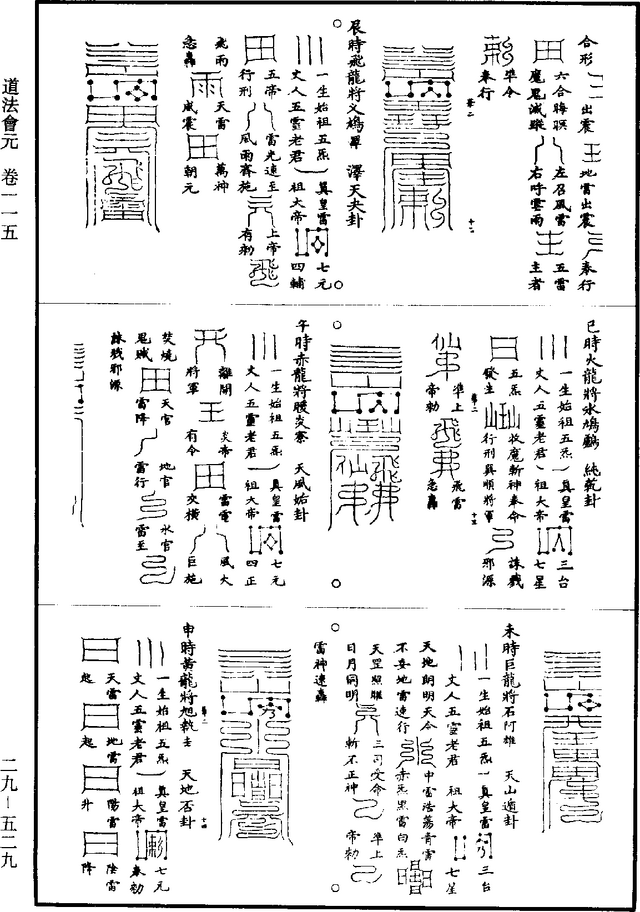 道法會元　卷一一五
二九－五二九
合形　出震　地雷出震　奉行
六合晦暝　左召風雷　五雷
魔鬼滅蹤　右呼雲雨　主者
準令
奉行
辰時飛龍將文鳩羅　澤天夬卦
一生始祖五炁　真皇雷　七元
丈人五靈老君　祖大帝　四輔
五帝　雷光速至　上帝
行刑　風雨齊施　有勑
飛雨　天雷　萬神
急轟　威震　朝元
巳時火龍將水鳩鸕　純乾卦
一生始祖五炁　真皇雷　三台
丈人五靈老君　祖大帝　七星
五炁　收魔斬神奉命　誅戮
發生　行刑異順將軍　邪源
準上　飛雷
帝勑　急轟
午時赤龍將膄炎寨　天風姤卦
一生始祖五炁　真皇雷　七元
丈人五靈老君　祖大帝　四正
離開　炎帝　雷電　風火
將軍　有令　交橫　巨施
焚燒　天官　地官　水官
鬼賊　雷降　雷行　雷至
誅戮邪源
未時巨龍將石阿雄　天山遁卦
一生始祖五炁　真皇雷　三台
丈人五靈老君　祖大帝　七星
天地助明天令　申雷浩蕩青雷
不妄地雷速行　赤炁黑雷白炁
天罡照臨　三司受命　準上
日月同明　斬不正神　帝勑
雷神速轟
申時黃龍將旭執圭　天地否卦
一生始祖五炁　真皇雷　七元
丈人五靈老君　祖大帝　奉勑
天雷　地雷　陽雷　陰雷
起　起　升　降